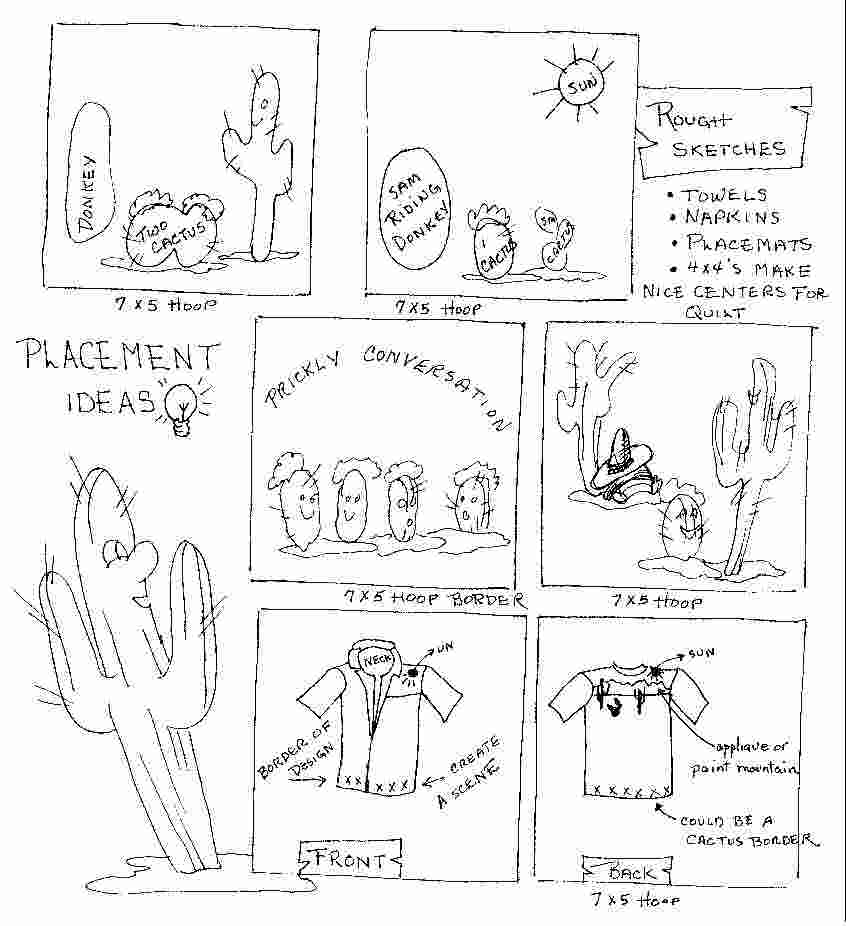 DONKEY
TWO
CACTUS
7 X 5 HOOP
SUN
SAM
RIDING
DONKEY
1
CACTUS
SM
CACTUS
7 X 5 HOOP
ROUGH
SKETCHES
• TOWELS
• NAPKINS
• PLACEMATS
• 4X4'S MAKE
NICE CENTERS FOR
QUILT
PLACEMENT
IDEAS
PRICKLY CONVERSATION
7 X 5 HOOP BORDER
7 X 5 HOOP
NECK
UN
BORDER OF
DESIGN
XX XXX
CREATE
A SCENE
FRONT
SUN
applique or
paint mountain
XXXXXX
COULD BE A
CACTUS BORDER
BACK
7 X 5 HOOP